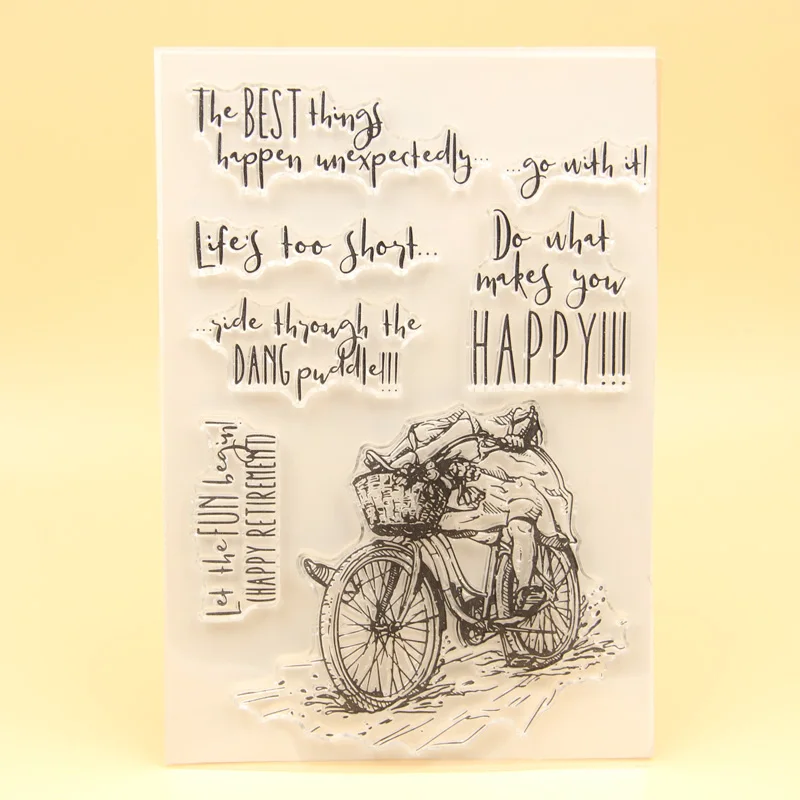 The BEST things
happen unexpectedly...
...go with it!
Life's too short...
Do what
makes you
HAPPY!!!
...ride through the
DANG puddle!!!
Let the FUN begin!
(HAPPY RETIREMENT)